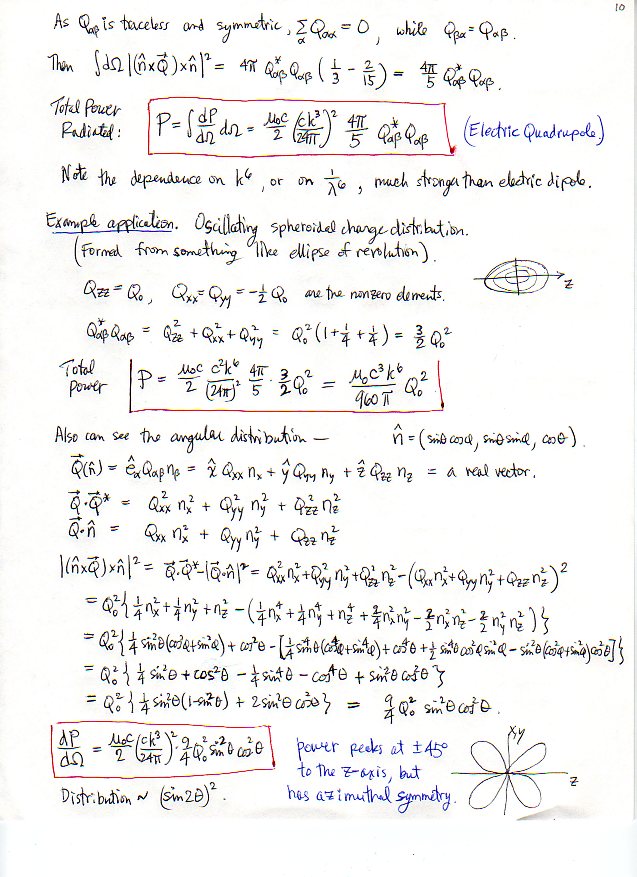 10
As Qαβ is traceless and symmetric, ∑α Qαα = 0, while Qβα = Qαβ.
Then ∫dΩ |(n̂×Q⃗)×n̂|² = 4π Q*αβ Qαβ (1/3 − 2/15) = 4π/5 Q*αβ Qαβ.
Total Power Radiated: P = ∫ dP/dΩ dΩ = μ₀c/2 (ck³/24π)² 4π/5 Q*αβ Qαβ (Electric Quadrupole)
Note the dependence on k⁶, or on 1/λ⁶, much stronger than electric dipole.
Example application. Oscillating spheroidal charge distribution.
(Formed from something like ellipse of revolution).
z
Qzz = Q₀, Qxx = Qyy = −½ Q₀ are the nonzero elements.
Q*αβ Qαβ = Q²zz + Q²xx + Q²yy = Q₀² (1 + ¼ + ¼) = 3/2 Q₀²
Total power P = μ₀c/2 c²k⁶/(24π)² 4π/5 · 3/2 Q₀² = μ₀c³k⁶/960π Q₀²
Also can see the angular distribution — n̂ = (sinθ cosφ, sinθ sinφ, cosθ).
Q⃗(n̂) = êα Qαβ nβ = x̂ Qxx nx + ŷ Qyy ny + ẑ Qzz nz = a real vector.
Q⃗·Q⃗* = Q²xx nx² + Q²yy ny² + Q²zz nz²
Q⃗·n̂ = Qxx nx² + Qyy ny² + Qzz nz²
|(n̂×Q⃗)×n̂|² = Q⃗·Q⃗* − |Q⃗·n̂|² = Q²xx nx² + Q²yy ny² + Q²zz nz² − (Qxx nx² + Qyy ny² + Qzz nz²)²
= Q₀² {¼ nx² + ¼ ny² + nz² − (¼ nx⁴ + ¼ ny⁴ + nz⁴ + 2/4 nx² ny² − 2/2 nx² nz² − 2/2 ny² nz²)}
= Q₀² {¼ sin²θ (cos²φ + sin²φ) + cos²θ − [¼ sin⁴θ (cos⁴φ + sin⁴φ) + cos⁴θ + ½ sin⁴θ cos²φ sin²φ − sin²θ (cos²φ + sin²φ) cos²θ]}
= Q₀² {¼ sin²θ + cos²θ − ¼ sin⁴θ − cos⁴θ + sin²θ cos²θ}
= Q₀² {¼ sin²θ (1 − sin²θ) + 2 sin²θ cos²θ} = 9/4 Q₀² sin²θ cos²θ.
dP/dΩ = μ₀c/2 (ck³/24π)² · 9/4 Q₀² sin²θ cos²θ
power peaks at ±45°
to the z-axis, but
has azimuthal symmetry.
xy
z
Distribution ~ (sin 2θ)².